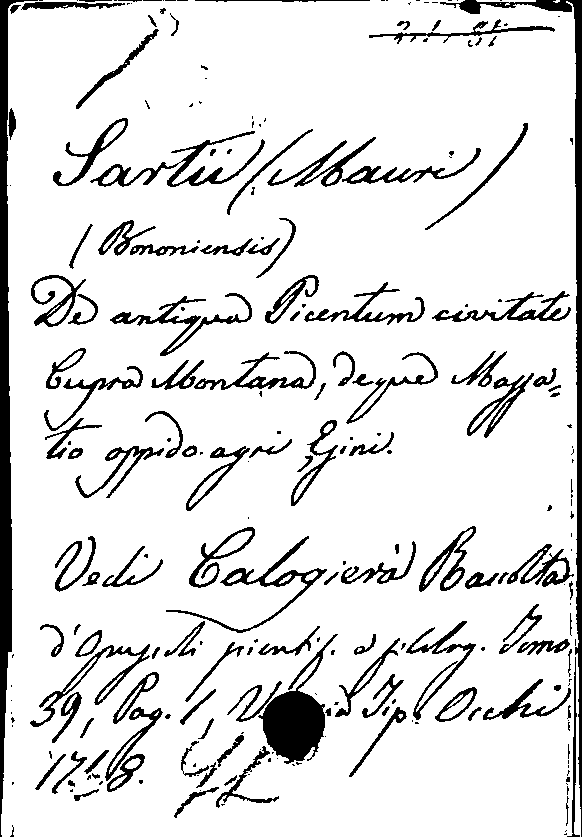 Sartii (Mauri)
(Bononiensis)
De antiqua Picentum civitate
Cupra Montana, deque Massa-
tio oppido agri Esini.
Vedi Calogierà Raccolta
d'Opuscoli scientif. e filolog. Tomo
39, Pag. 1, Tip. Occhi